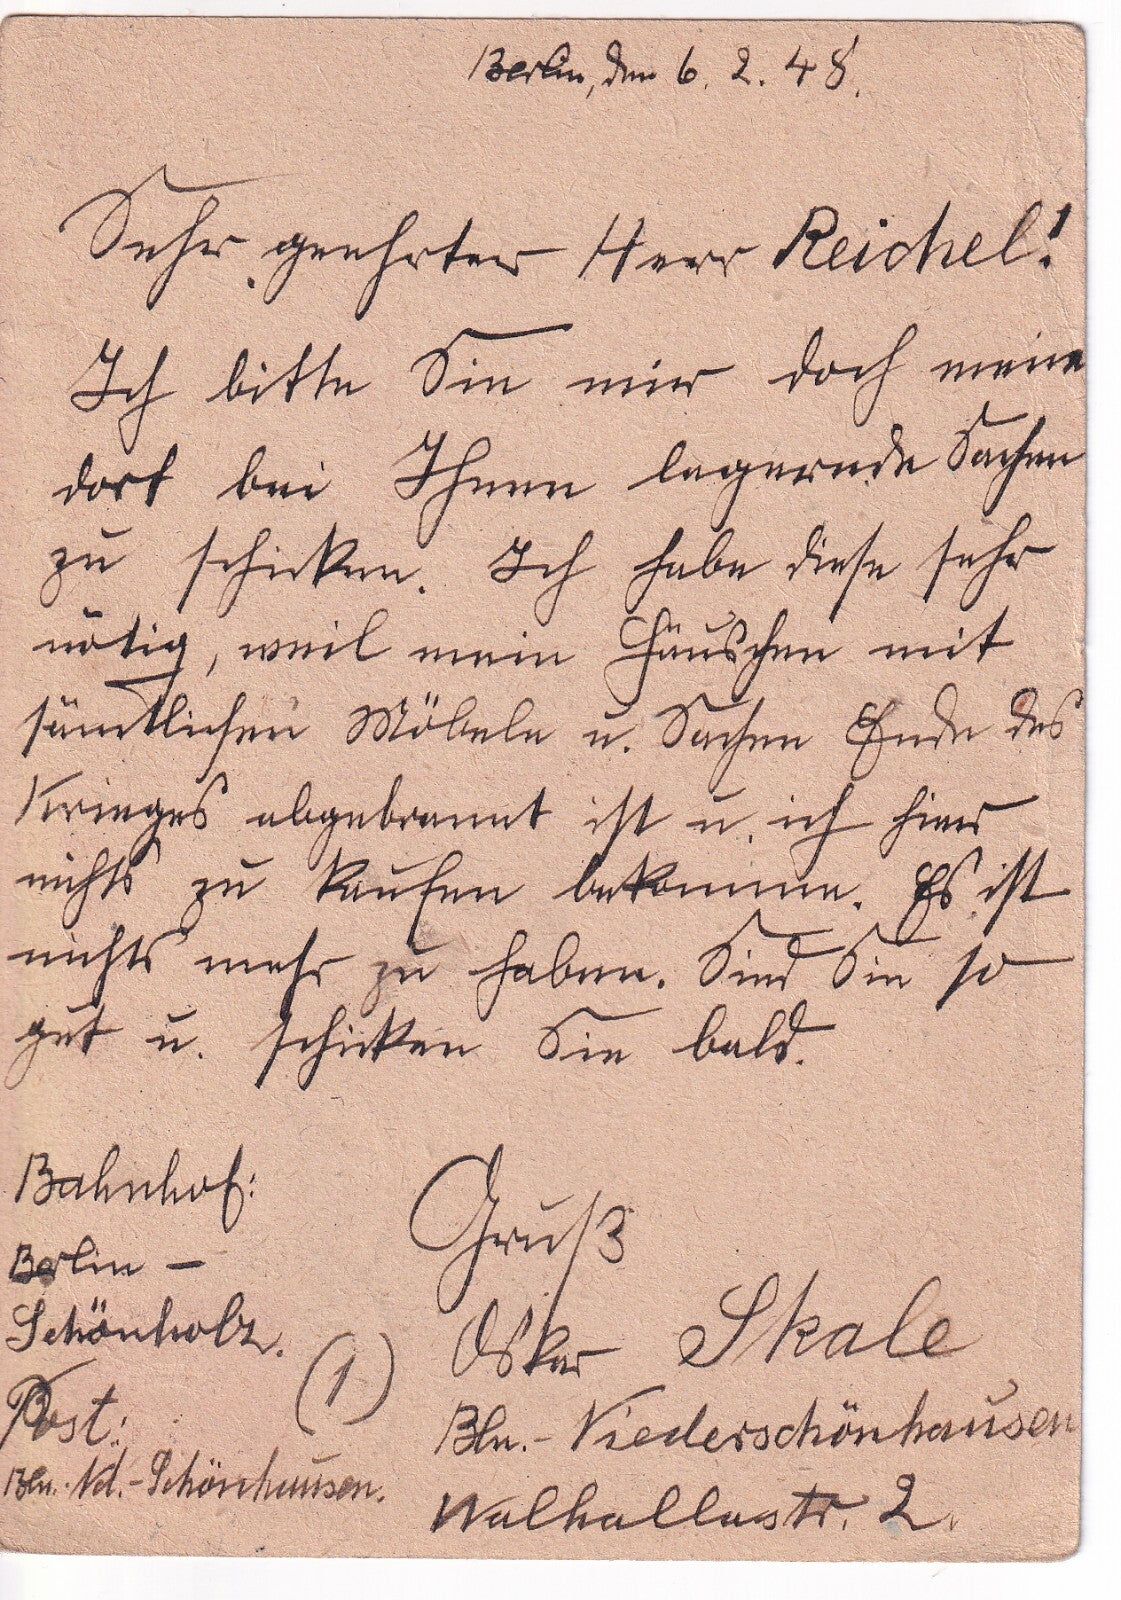 Berlin, den 6. 2. 48.
Sehr geehrter Herr Reichel!
Ich bitte Sie mir doch meine
dort bei Ihnen lagernde Sachen
zu schicken. Ich habe diese sehr
nötig, weil mein Häuschen mit
sämtlichen Möbeln u. Sachen Ende des
Krieges abgebrannt ist u. ich hier
nichts zu kaufen bekomme. Es ist
nichts mehr zu haben. Sind Sie so
gut u. schicken Sie bald.
Bahnhof:
Berlin –
Schönholz.
Post:
Bln.-Nd.-Schönhausen.
(1)
Gruß
Oskar Skale
Bln.- Niederschönhausen
Walhallastr. 2.